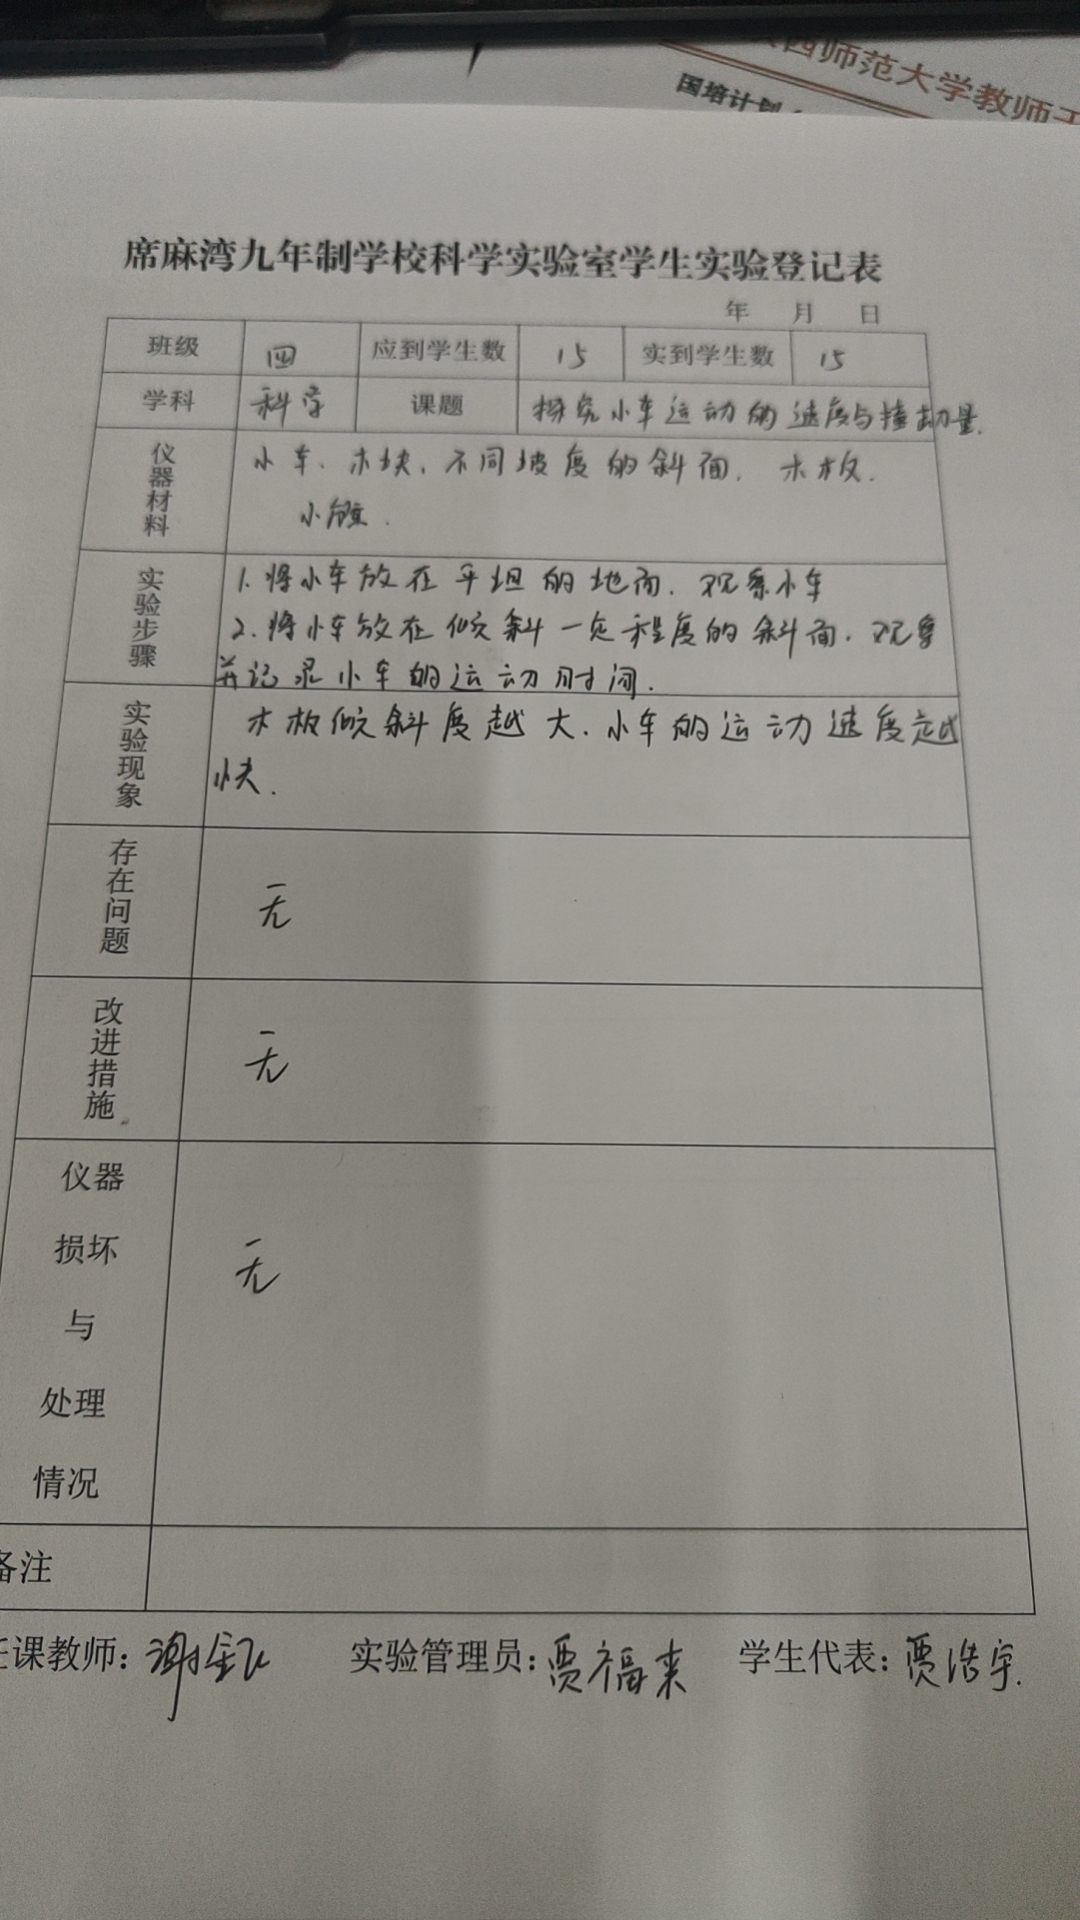 西师范大学教师
国培计划
席麻湾九年制学校科学实验室学生实验登记表
年 月 日
班级 四 应到学生数 15 实到学生数 15
学科 科学 课题 探究小车运动的速度与撞击力量.
仪器材料 小车、木块、不同坡度的斜面. 木板.
小
实验步骤 1.将小车放在平坦的地面.观察小车
2.将小车放在倾斜一定程度的斜面.观察
并记录小车的运动时间.
实验现象 木板倾斜度越大.小车的运动速度越
快.
存在问题 无
改进措施 无
仪器 损坏 与 处理 情况 无
备注
任课教师: 谢 实验管理员: 贾福来 学生代表: 贾浩宇.